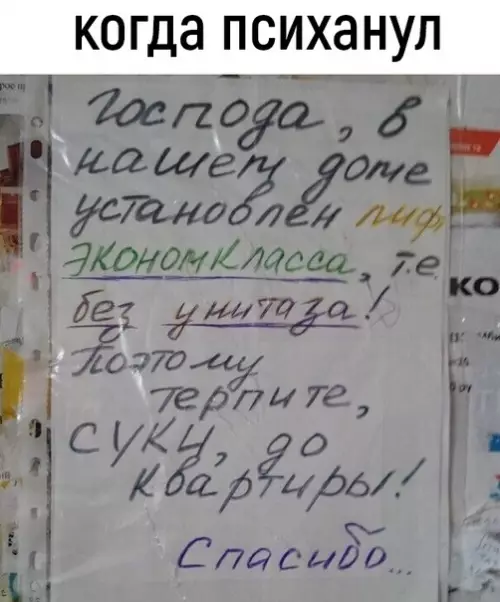 когда психанул
Господа, в
нашем доме
установлен лиф
экономкласса, т.е.
без унитаза!
Поэтому
терпите,
суки, до
квартиры!
Спасибо...
КО